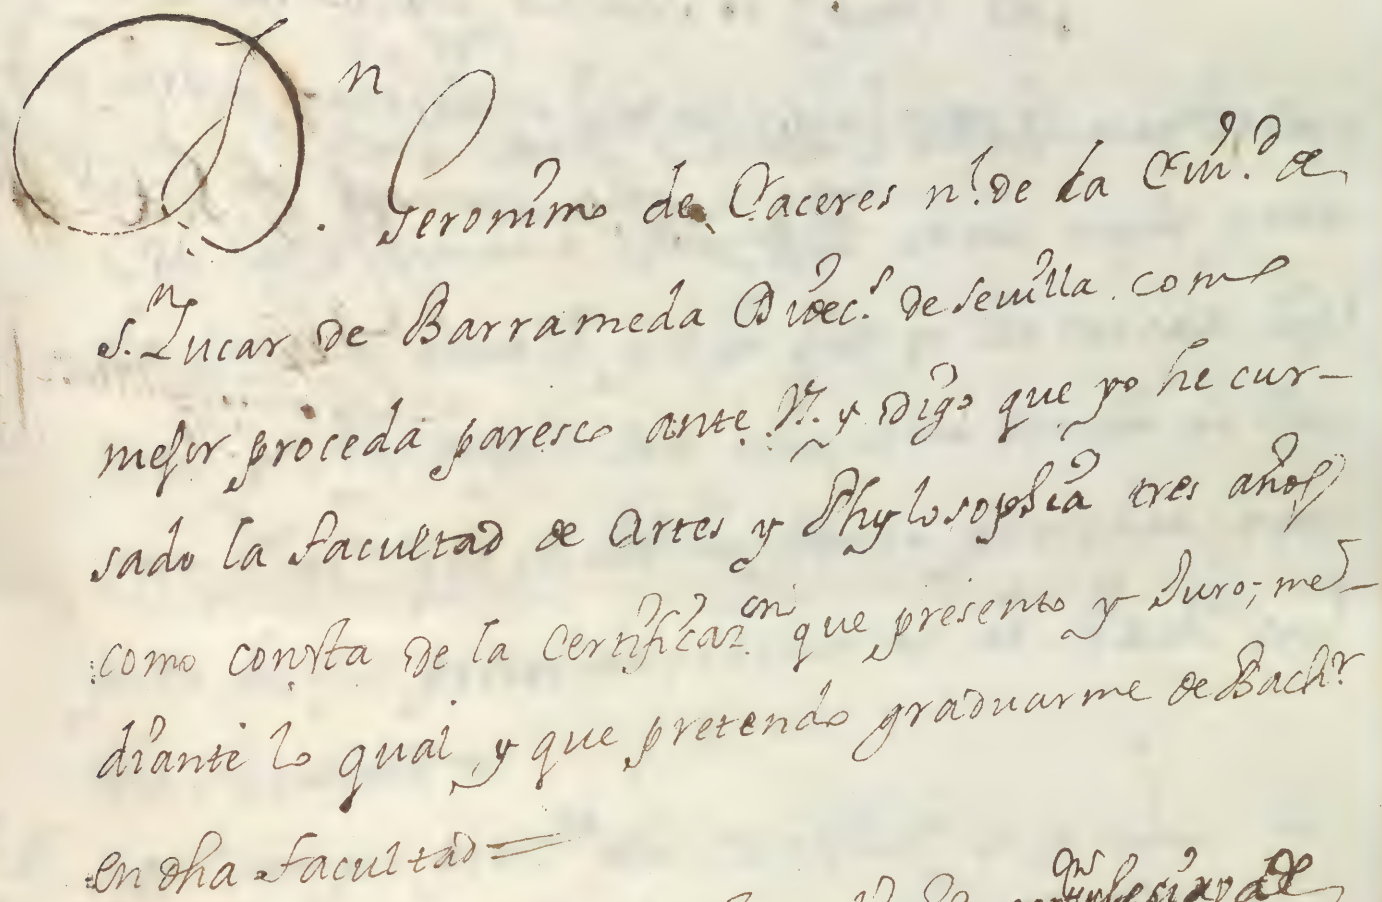 D.n Geronimo de Caceres n.l de la Ciu.d de
S.n Lucar de Barrameda Dioec.s de Sevilla como
mejor proceda paresco ante V. y digo que yo he cur-
sado la facultad de Artes y Phylosophia tres años
como consta de la Certificaz.on que presento y Juro; me-
diante lo qual y que pretendo graduarme de Bach.r
en dha facultad =